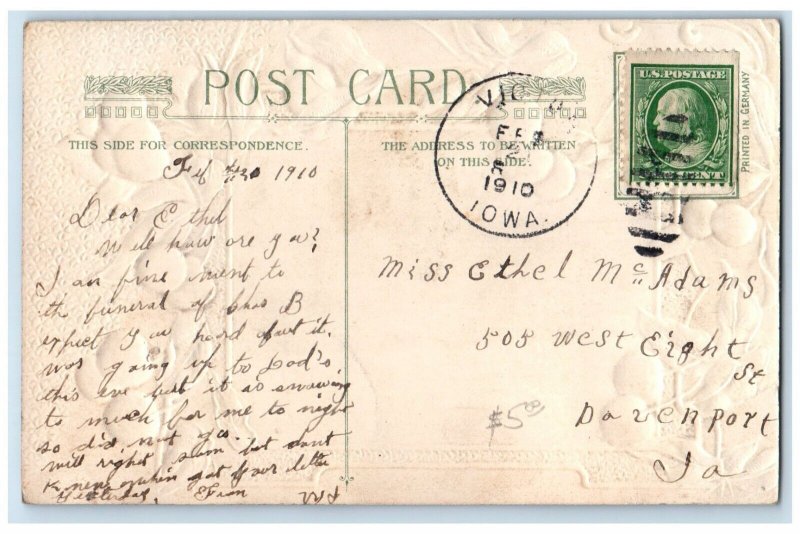 POST CARD
THIS SIDE FOR CORRESPONDENCE.
THE ADDRESS TO BE WRITTEN
ON THIS SIDE.
U.S. POSTAGE
CENT
PRINTED IN GERMANY
1910
IOWA.
1910
Dear Ethel
Well how are you?
I am fine went to
the funeral of Chas B
expect you heard about it.
was going up to Dad's
this eve but it is snowing
to much for me to night
so did not go.
will right soon but dont
got your letter
Yesterday.
Miss Ethel McAdams
505 West Eight
St
Davenport
Ia
$5.00